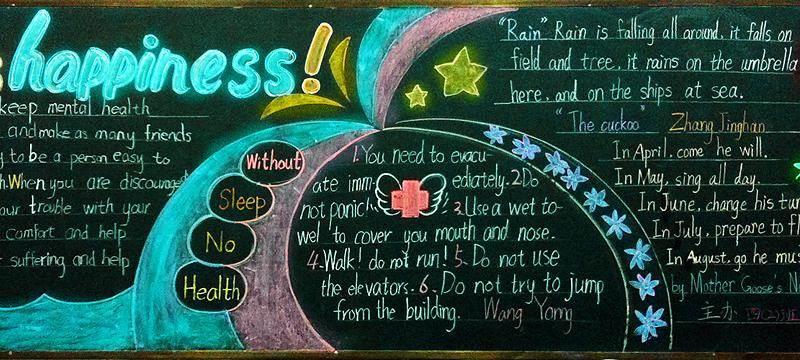 happiness!
keep mental health
and make as many friends
to be a person easy to
When you are discouraged
our trouble with your
comfort and help
suffering and help
Without
Sleep
No
Health
1.You need to evacu-
ate imm ediately.2Do
not panic! 3.Use a wet to-
wel to cover you mouth and nose.
4.Walk! do not run! 5. Do not use
the elevators. 6. Do not try to jump
from the building. Wang Yong
"Rain" Rain is falling all around, it falls on
field and tree, it rains on the umbrella
here, and on the ships at sea.
"The cuckoo" Zhang Jinghan
In April, come he will.
In May, sing all day.
In June, change his tu
In July, prepare to fl
In August, go he mus
by Mother Goose's N
主办